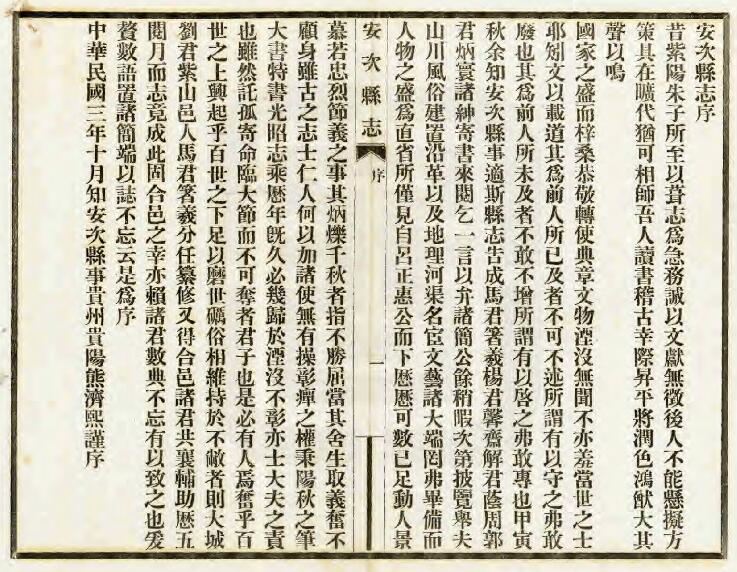 安次縣志序
昔紫陽朱子所至以葺志為急務誠以文獻無徵後人不能懸擬方
策具在曠代猶可相師吾人讀書稽古幸際昇平將潤色鴻猷大其
聲以鳴
國家之盛而梓桑恭敬轉使典章文物湮沒無聞不亦羞當世之士
耶矧文以載道其為前人所已及者不可不述所謂有以守之弗敢
廢也其為前人所未及者不敢不增所謂有以啓之弗敢專也甲寅
秋余知安次縣事適斯縣志告成馬君箸羲楊君馨齋解君蔭周郭
君炳寰諸紳寄書來閱乞一言以弁諸簡公餘稍暇次第披覽舉夫
山川風俗建置沿革以及地理河渠名宦文藝諸大端罔弗畢備而
人物之盛為直省所僅見自呂正惠公而下歷歷可數已足動人景
安次縣志
序
一
慕若忠烈節義之事其炳爍千秋者指不勝屈當其舍生取義奮不
顧身雖古之志士仁人何以加諸使無有操彰癉之權秉陽秋之筆
大書特書光昭志乘歷年既久必幾歸於湮沒不彰亦士大夫之責
也雖然託孤寄命臨大節而不可奪者君子也是必有人焉奮乎百
世之上興起乎百世之下足以磨世礪俗相維持於不敝者則大城
劉君紫山邑人馬君箸羲分任纂修又得合邑諸君共襄輔助歷五
閱月而志竟成此固合邑之幸亦賴諸君數典不忘有以致之也爰
贅數語置諸簡端以誌不忘云是為序
中華民國三年十月知安次縣事貴州貴陽熊濟熙謹序